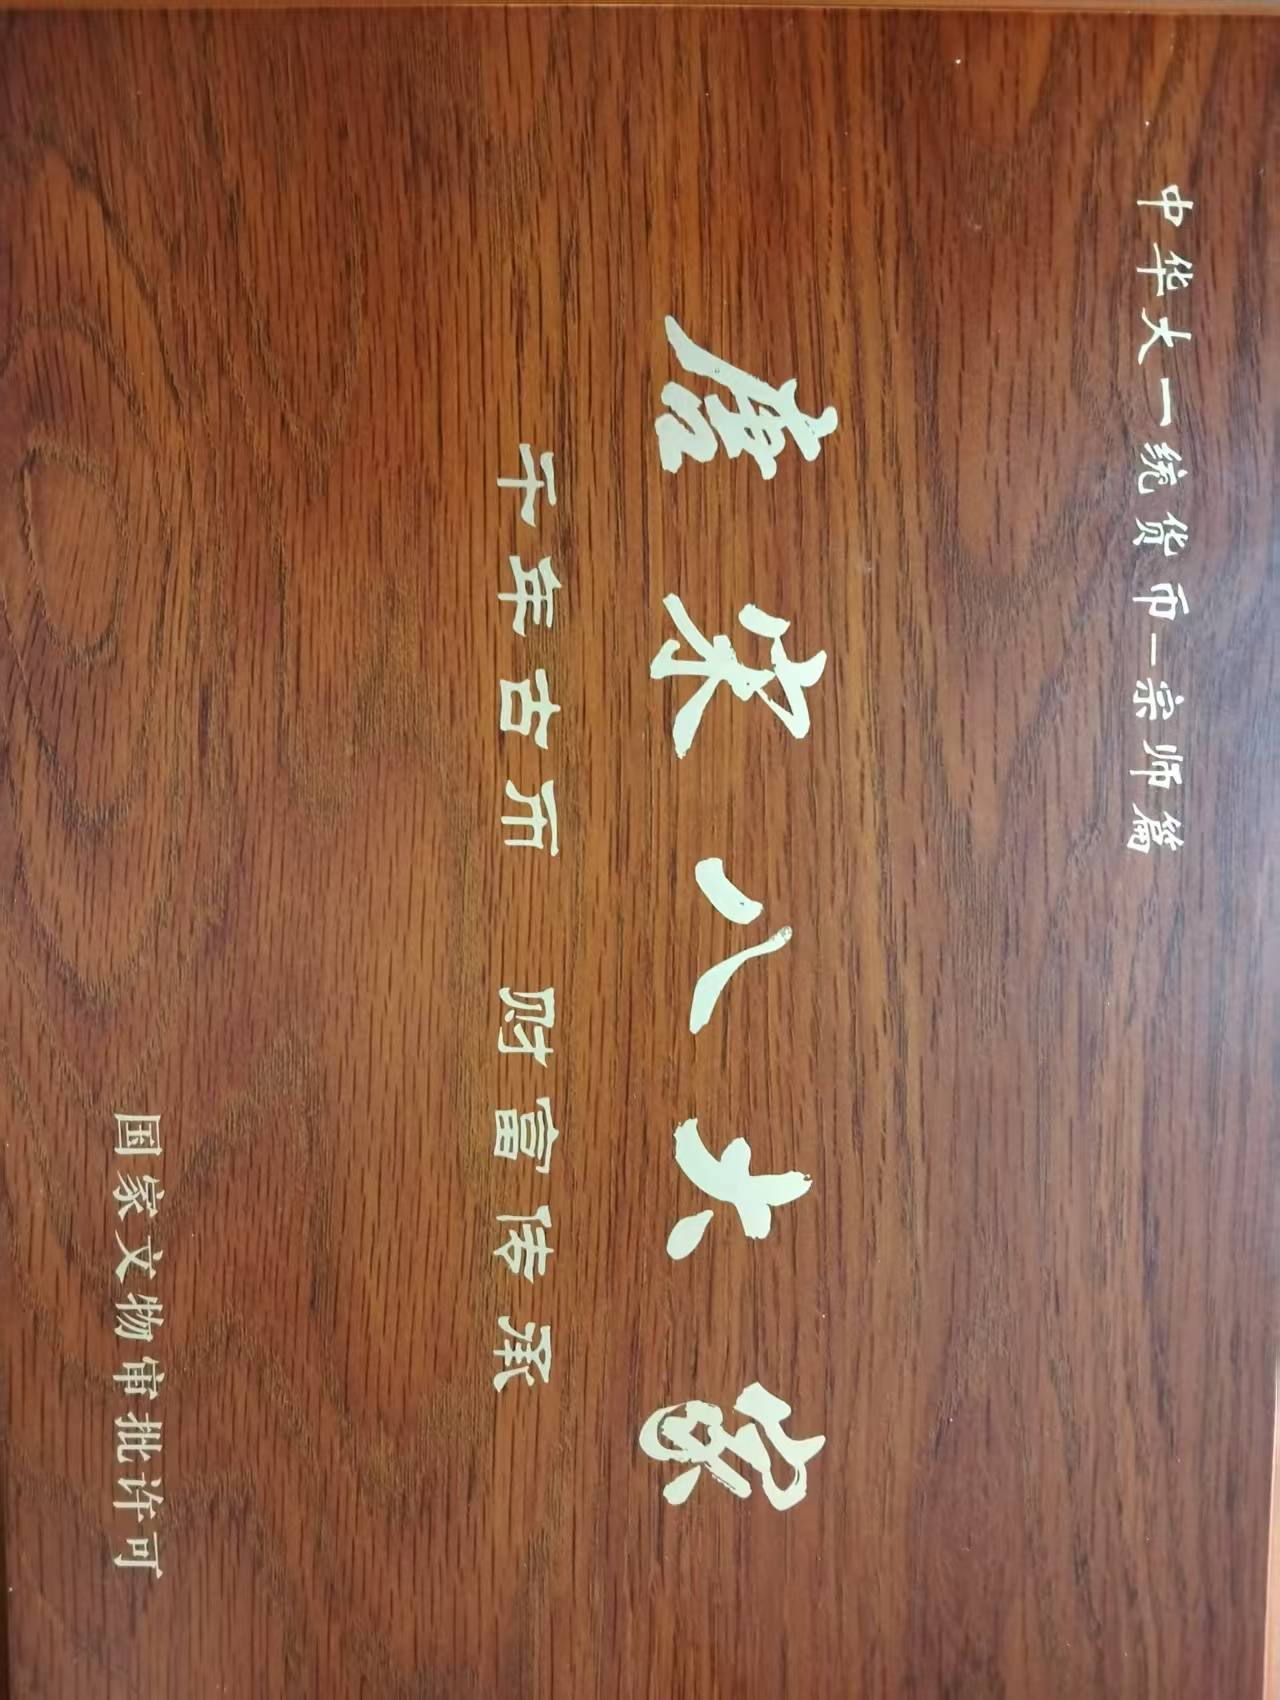 中华大一统货币—宗师篇
唐宋八大家
千年古币 财富传承
国家文物审批许可